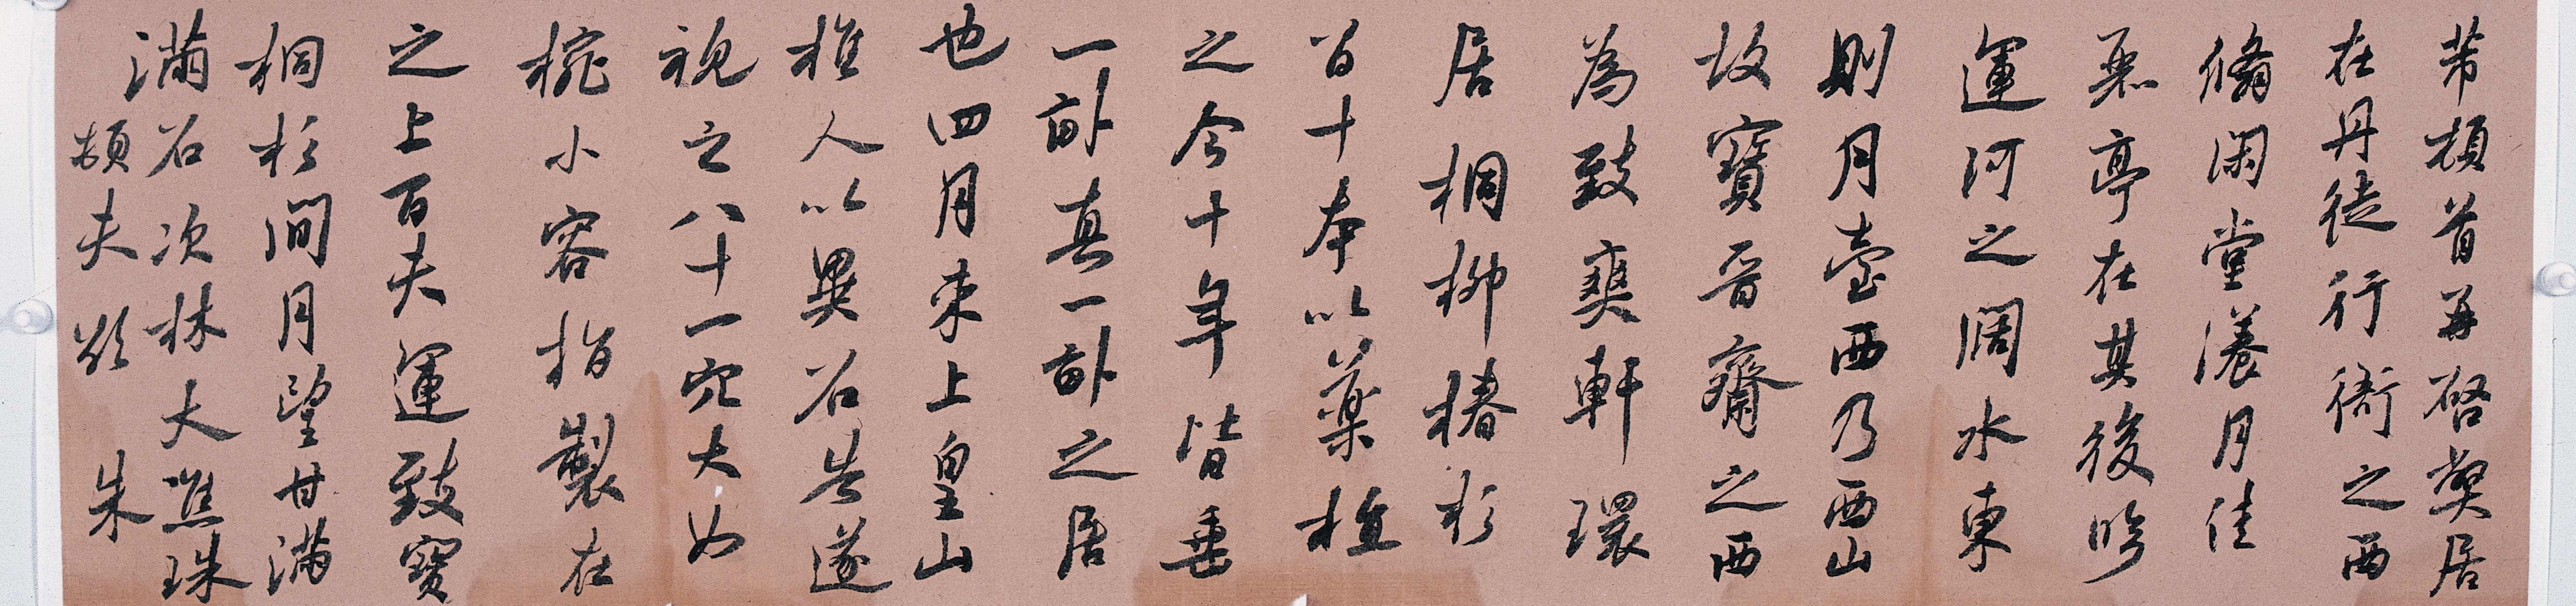 芾頓首再啓弊居
在丹徒行衙之西
翛閑堂漾月佳
麗亭在其後臨
運河之闊水東
則月臺西乃西山
故寶晉齋之西
為致爽軒環
居桐柳椿杉
百十本以藥植
之今十年皆垂
一畝真一畝之居
也四月末上皇山
樵人以異石告遂
視之八十一穴大如
椀小容指製在
之上百夫運致寶
桐杉間月望甘滿
滿石次林大珠
夫朱